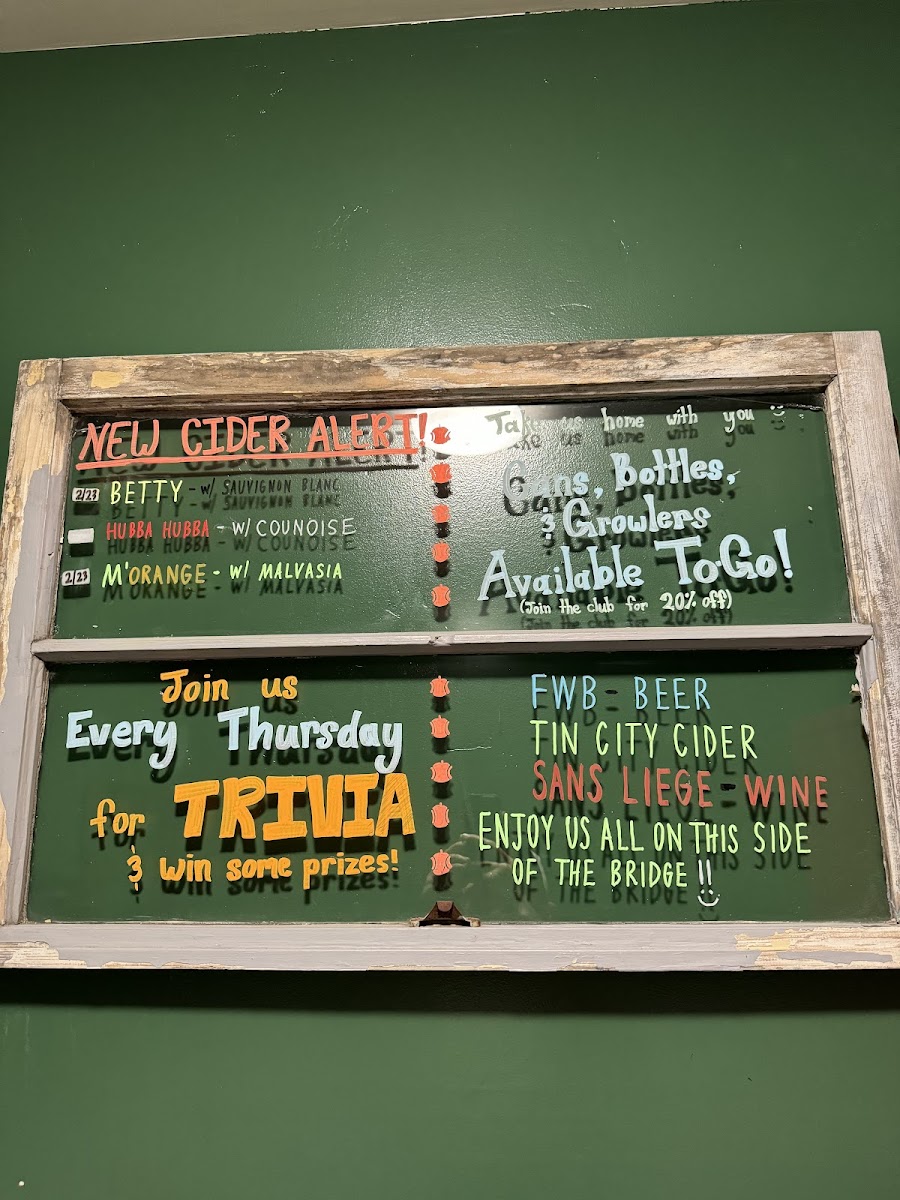 NEW CIDER ALERT!
2/23 BETTY - W/ SAUVIGNON BLANC
HUBBA HUBBA - W/ COUNOISE
2/23 M'ORANGE - W/ MALVASIA
Take us home with you
Cans, Bottles,
& Growlers
Available To-Go!
(Join the club for 20% off)
Join us
Every Thursday
for TRIVIA
& win some prizes!
FWB - BEER
TIN CITY CIDER
SANS LIEGE - WINE
ENJOY US ALL ON THIS SIDE
OF THE BRIDGE !!